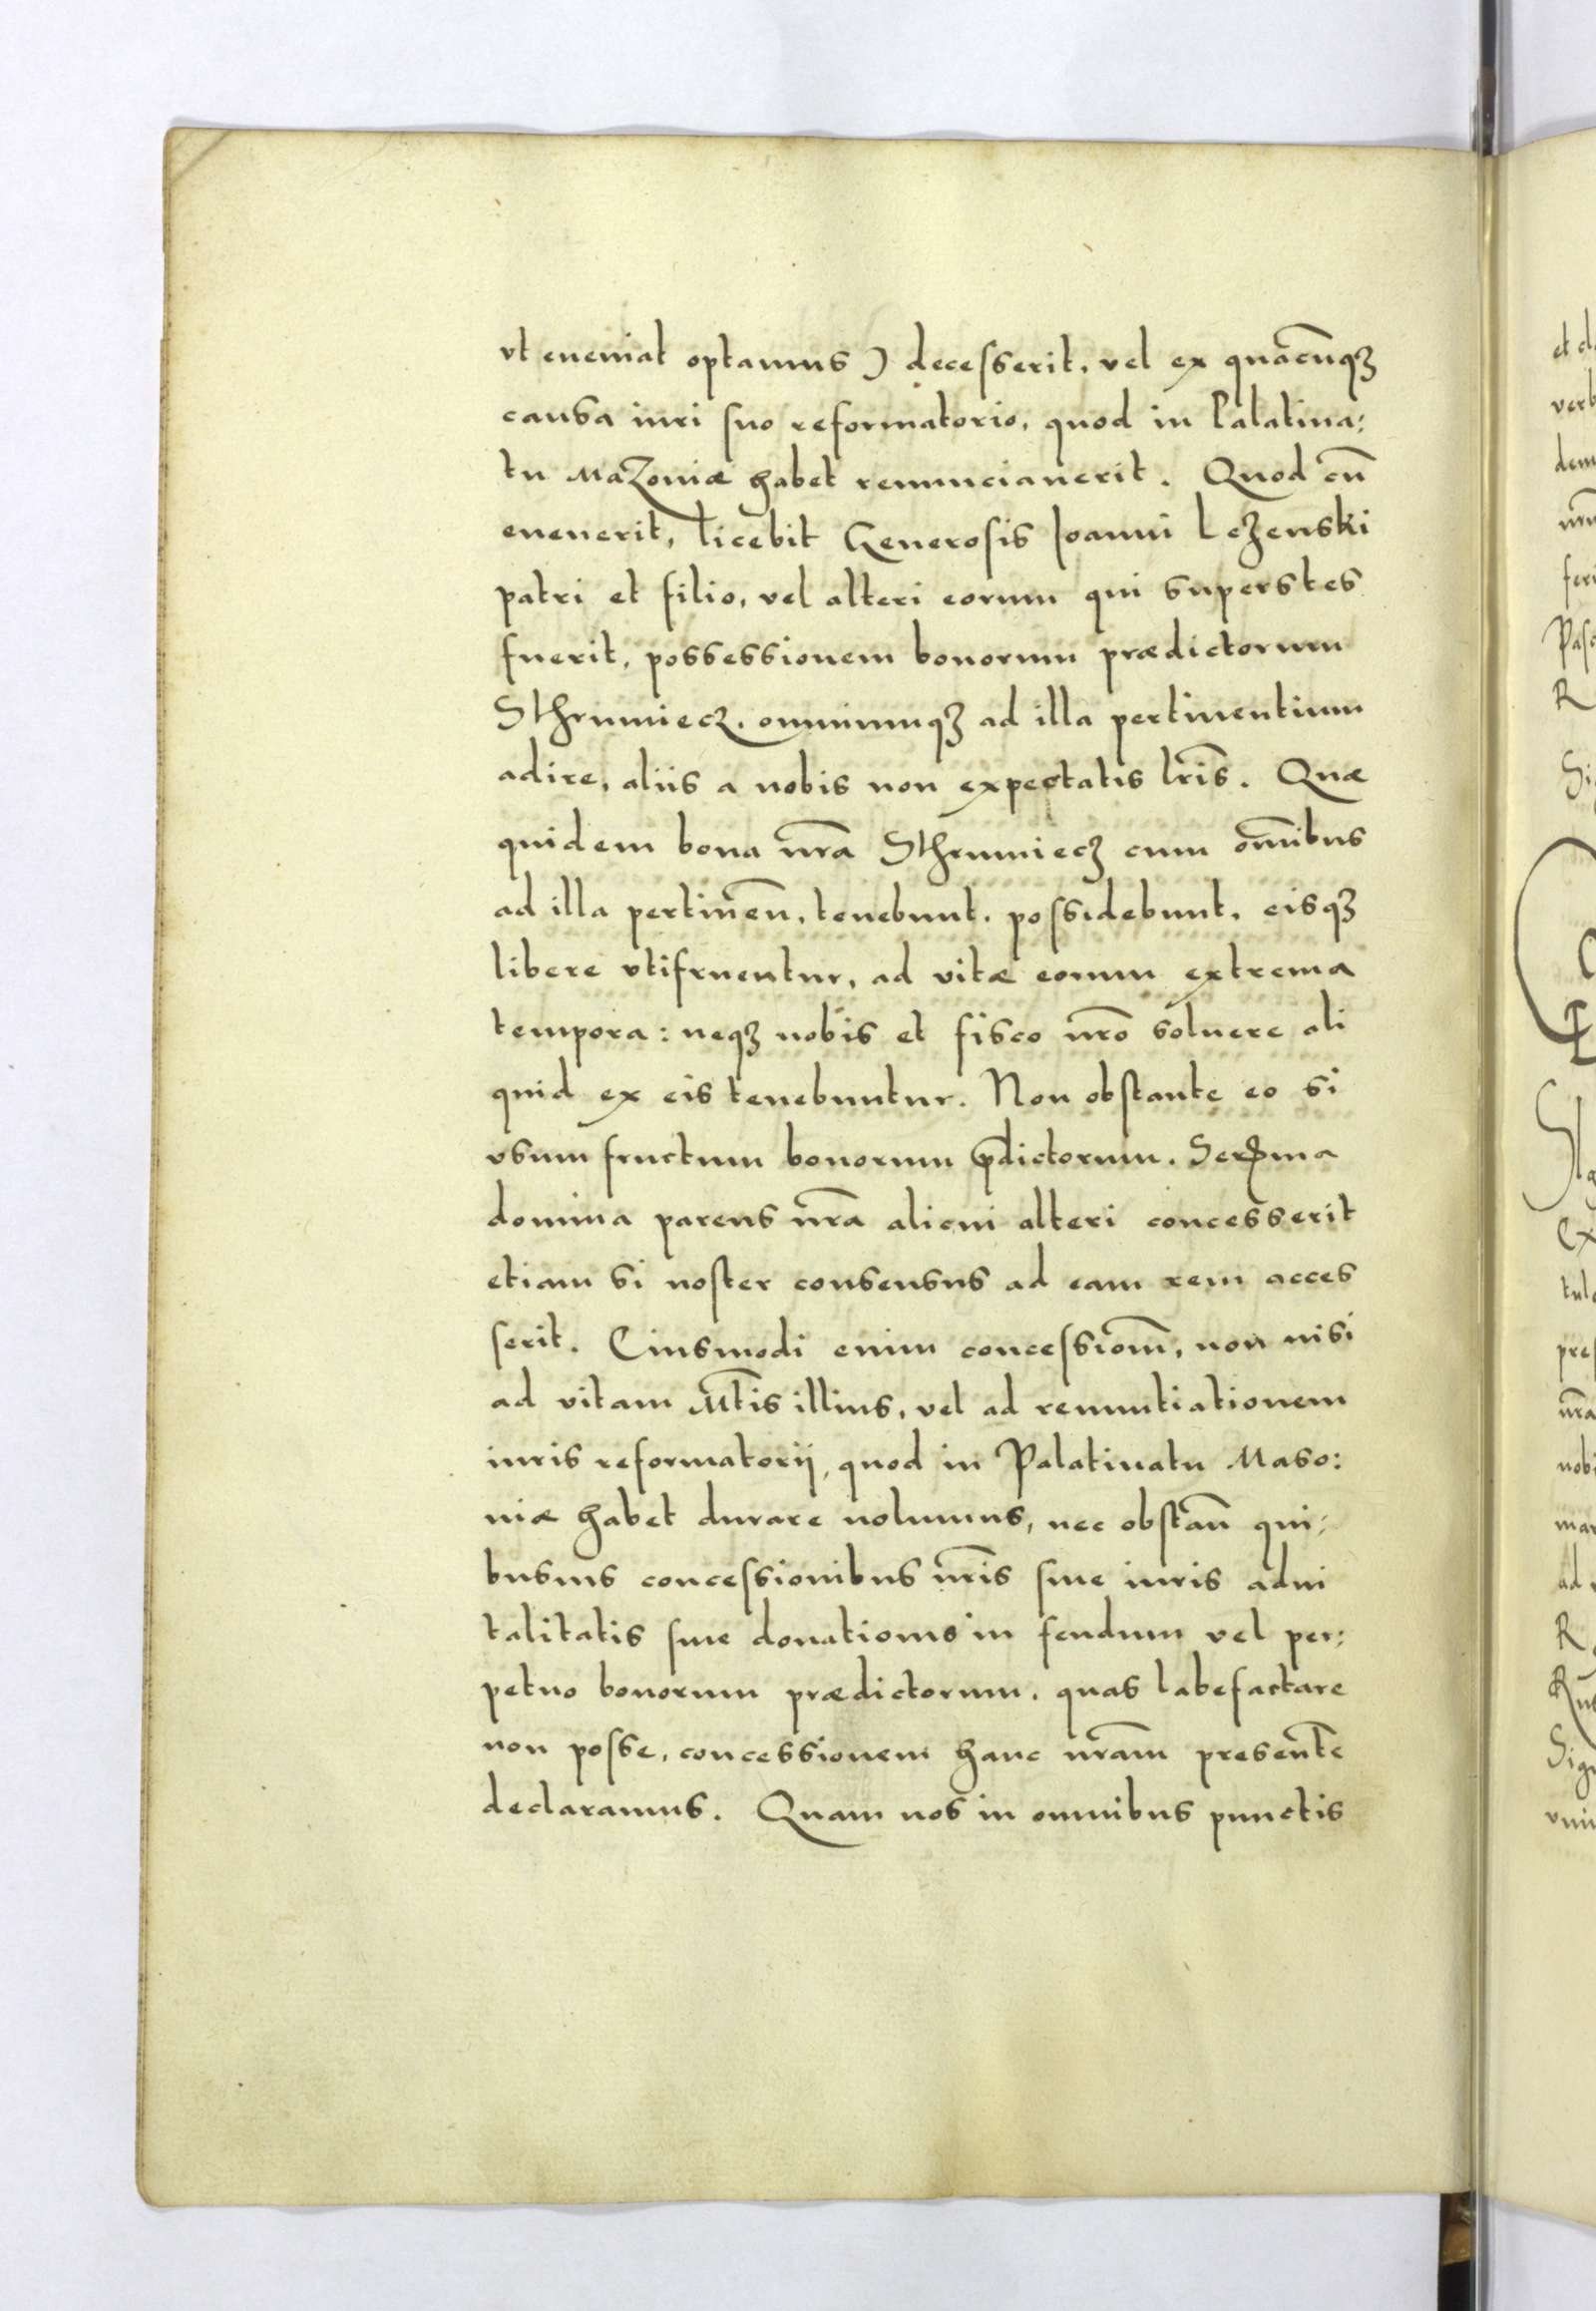 vt eueniat optamus ) decesserit, vel ex quacūqꝫ
causa iuri suo reformatorio, quod in Palatina:
tu Mazoniæ habet renunciauerit. Quod cū
euenerit, licebit Generosis Joanni Leżenski
patri et filio, vel alteri eorum qui superstes
fuerit, possessionem bonorum prædictorum
Sthrumiecz. omniumqꝫ ad illa pertinentium
adire, aliis a nobis non expectatis lr̄is. Quæ
quidem bona nr̄a Sthrumiecz cum om̄ibus
ad illa pertinen̄, tenebunt. possidebunt, eisqꝫ
libere vtifruentur, ad vitæ eorum extrema
tempora: neqꝫ nobis et fisco nr̄o soluere ali
quid ex eis tenebuntur. Non obstante eo si
vsum fructum bonorum p̄dictorum. Serma
domina parens nr̄a alicui alteri concesserit
etiam si noster consensus ad eam rem acces
serit. Eiusmodi enim concessiom̄, non nisi
ad vitam M̄tis illius, vel ad renuntiationem
iuris reformatorij, quod in Palatinatu Maso:
niæ habet durare volumus, nec obstan̄ qui:
busuis concessionibus nr̄is siue iuris adui
talitatis siue donationis in feudum vel per:
petuo bonorum prædictorum. quas labefactare
non posse, concessionem hanc nr̄am presente
declaramus. Quam nos in omnibus punctis